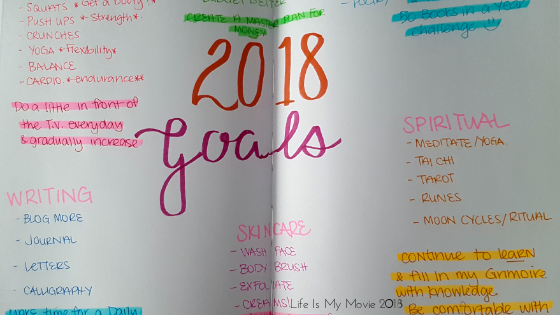 - SQUATS * Get a booty *
- PUSH UPS *-Strength*-
- CRUNCHES
- YOGA *Flexibility*
- BALANCE
- CARDIO *endurance**
Do a little in front of
the T.V. everyday
& gradually increase
CREATE A MASTER PLAN FOR
MONEY
80 Books in a Year
challenge
2018
Goals
WRITING
- BLOG MORE
- JOURNAL
- LETTERS
- CALLIGRAPHY
More time for a Daily
SKINCARE
- WASH FACE
- BODY BRUSH
- EXFOLIATE
- CREAMS
SPIRITUAL
- MEDITATE/YOGA
- TAI CHI
- TAROT
- RUNES
- MOON CYCLES/RITUAL
continue to learn
& fill in my Grimoire
with knowledge.
Be comfortable with
Life Is My Movie 2018